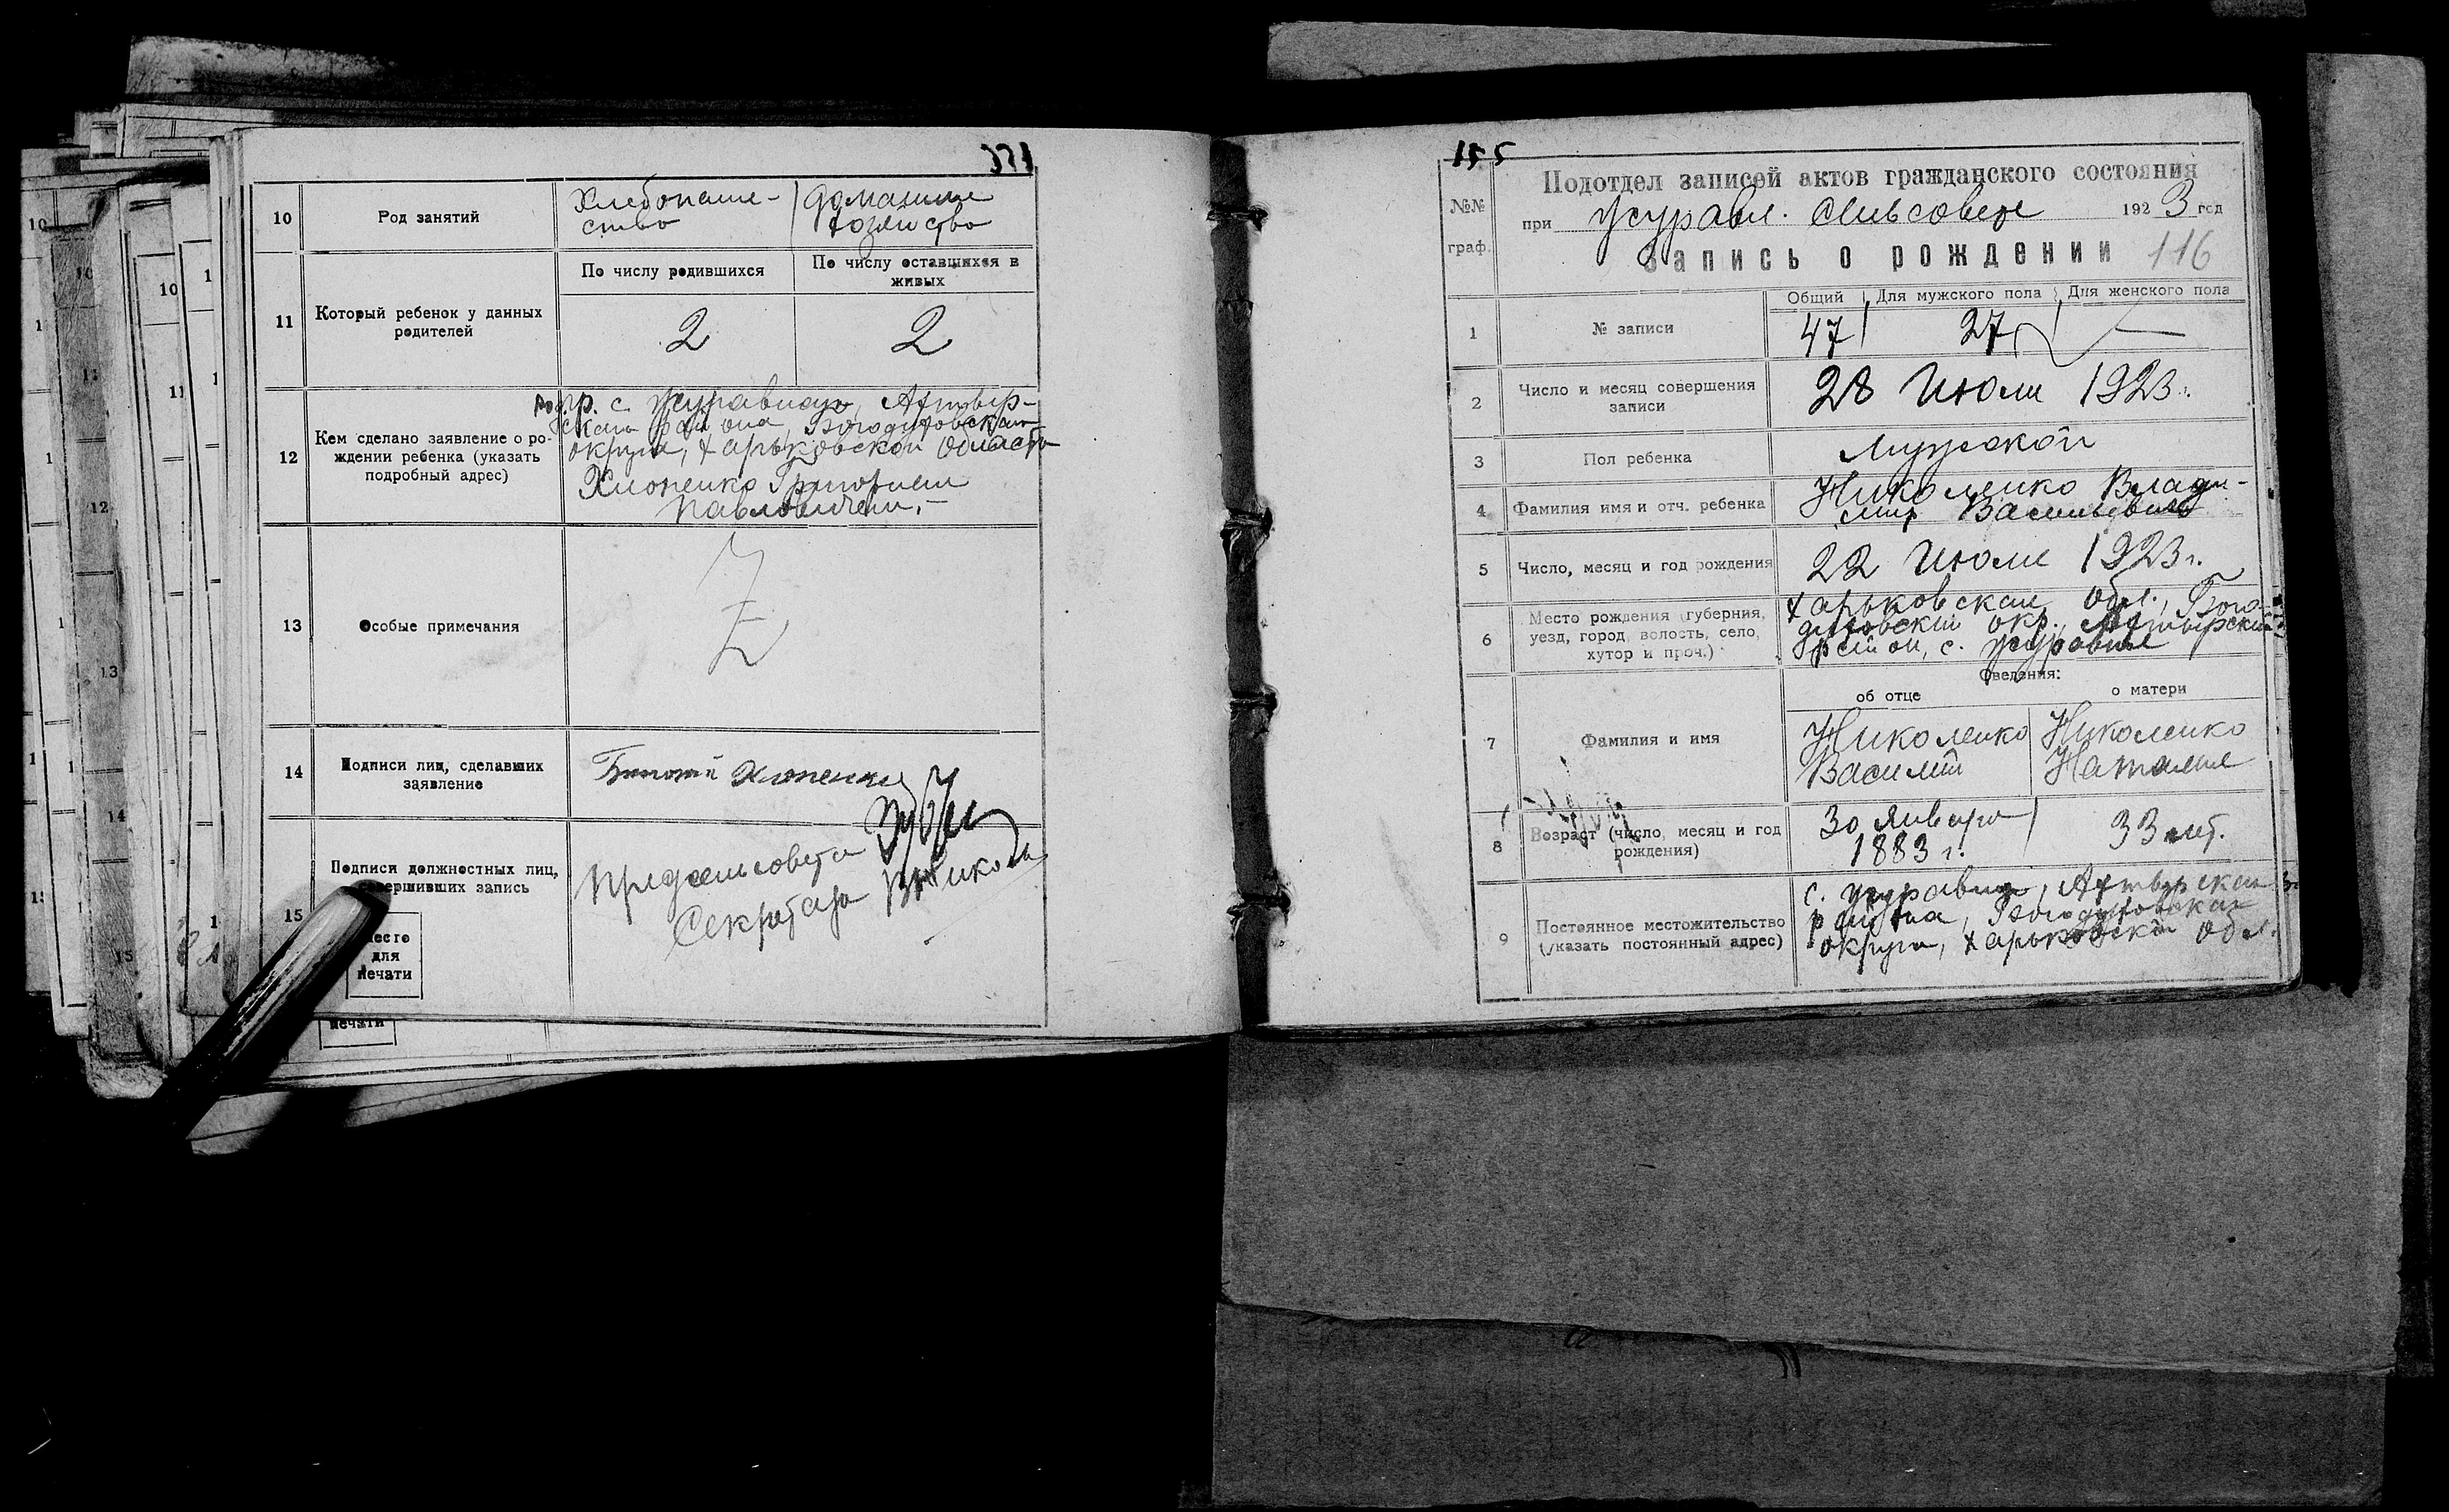 10
Род занятий
Хлебопаше-
ство
Домашнее
хозяйство
11
Который ребенок у данных
родителей
По числу родившихся
По числу оставшихся в
живых
2
2
12
Кем сделано заявление о ро-
ждении ребенка (указать
подробный адрес)
гр. с. Журавного, Ахтыр-
ского района, Богодуховского
округа, Харьковской области
Хлопенко Григорием
Павловичем.
13
Особые примечания
Z
14
Подписи лиц, сделавших
заявление
Хлопенко
15
Подписи должностных лиц,
совершивших запись
Место
для
печати
Предсельсовета
Секретарь
печати
155
№№
граф.
Подотдел записей актов гражданского состояния
при Журавл. Сельсовете 1923 год
Запись о рождении 116
1
№ записи
Общий
Для мужского пола
Для женского пола
47
27
—
2
Число и месяц совершения
записи
28 Июля 1923 г.
3
Пол ребенка
Мужской
4
Фамилия имя и отч. ребенка
Николенко Влади-
мир Васильевич
5
Число, месяц и год рождения
22 Июля 1923 г.
6
Место рождения (губерния,
уезд, город, волость, село,
хутор и проч.)
Харьковская Обл., Бого-
духовский окр., Ахтырский
район, с. Журавное
Сведения:
об отце
о матери
7
Фамилия и имя
Николенко
Василий
Николенко
Наталия
8
Возраст (число, месяц и год
рождения)
30 Января
1883 г.
33 лет.
9
Постоянное местожительство
(указать постоянный адрес)
с. Журавное, Ахтырского
района, Богодуховского
округа, Харьковской Обл.